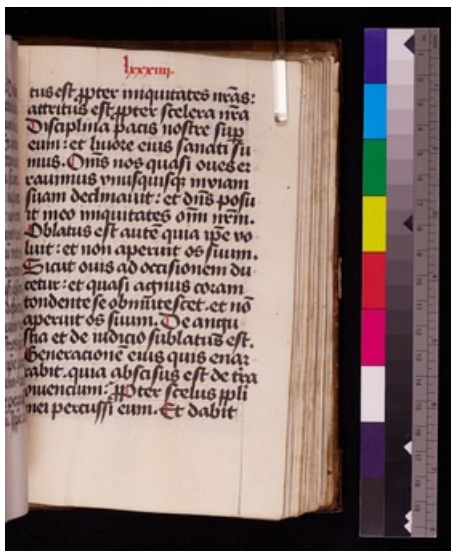 lxxxiiij.
tus est ꝓpter iniquitates nr̄as:
attritus est ꝓpter scelera nr̄a
Disciplina pacis nostre sup̲
eum: et liuore eius sanati su
mus. Om̄s nos quasi oues er
rauimus vnusquisqꝫ in viam
suam declinauit: et dn̄s posu
it in eo iniquitates om̄i nr̄m.
Oblatus est autē quia ip̄e vo
luit: et non aperuit os suum.
Sicut ouis ad occisionem du
cetur: et quasi agnus coram
tondente se obmutescet. et nō
aperuit os suum. De angu
stia et de iudicio sublatus est.
Generationē eius quis enar
rabit. quia abscisus est de tr̄a
viuencium: ꝓpter scelus ppli
mei percussi eum. Et dabit